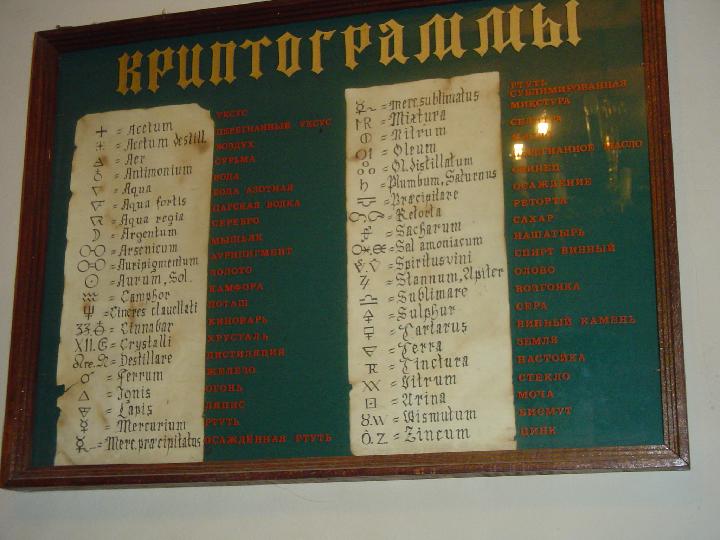 криптограммы
= Acetum
= Acetum destill.
= Aer
= Antimonium
= Aqua
= Aqua fortis
= Aqua regia
= Argentum
= Arsenicum
= Auripigmentum
= Aurum, Sol.
= Camphor
= Cineres clavellati
= Cinnabar
= Crystalli
= Destillare
= Ferrum
= Ignis
= Lapis
= Mercurium
= Merc. præcipitatus
УКСУС
ПЕРЕГНАННЫЙ УКСУС
ВОЗДУХ
СУРЬМА
ВОДА
ВОДА АЗОТНАЯ
ЦАРСКАЯ ВОДКА
СЕРЕБРО
МЫШЬЯК
АУРИПИГМЕНТ
ЗОЛОТО
КАМФОРА
ПОТАШ
КИНОВАРЬ
ХРУСТАЛЬ
ДИСТИЛЯЦИЯ
ЖЕЛЕЗО
ОГОНЬ
ЛЯПИС
РТУТЬ
ОСАЖДЁННАЯ РТУТЬ
= merc. sublimatus
= Mixtura
= Nitrum
= Oleum
= Ol. distillatum
= Plumbum, Saturnus
= Precipitare
= Retorta
= Sacharum
= Sal amoniacum
= Spiritus vini
= Stannum, Upiter
= Sublimare
= Sulphur
= Tartarus
= Terra
= Tinctura
= Vitrum
= Urina
= Wismutum
= Zincum
РТУТЬ
СУБЛИМИРОВАННАЯ
МИКСТУРА
МАСЛО
СВИНЕЦ
ОСАЖДЕНИЕ
РЕТОРТА
САХАР
НАШАТЫРЬ
СПИРТ ВИННЫЙ
ОЛОВО
ВОЗГОНКА
СЕРА
ВИННЫЙ КАМЕНЬ
ЗЕМЛЯ
НАСТОЙКА
СТЕКЛО
МОЧА
ВИСМУТ
ЦИНК